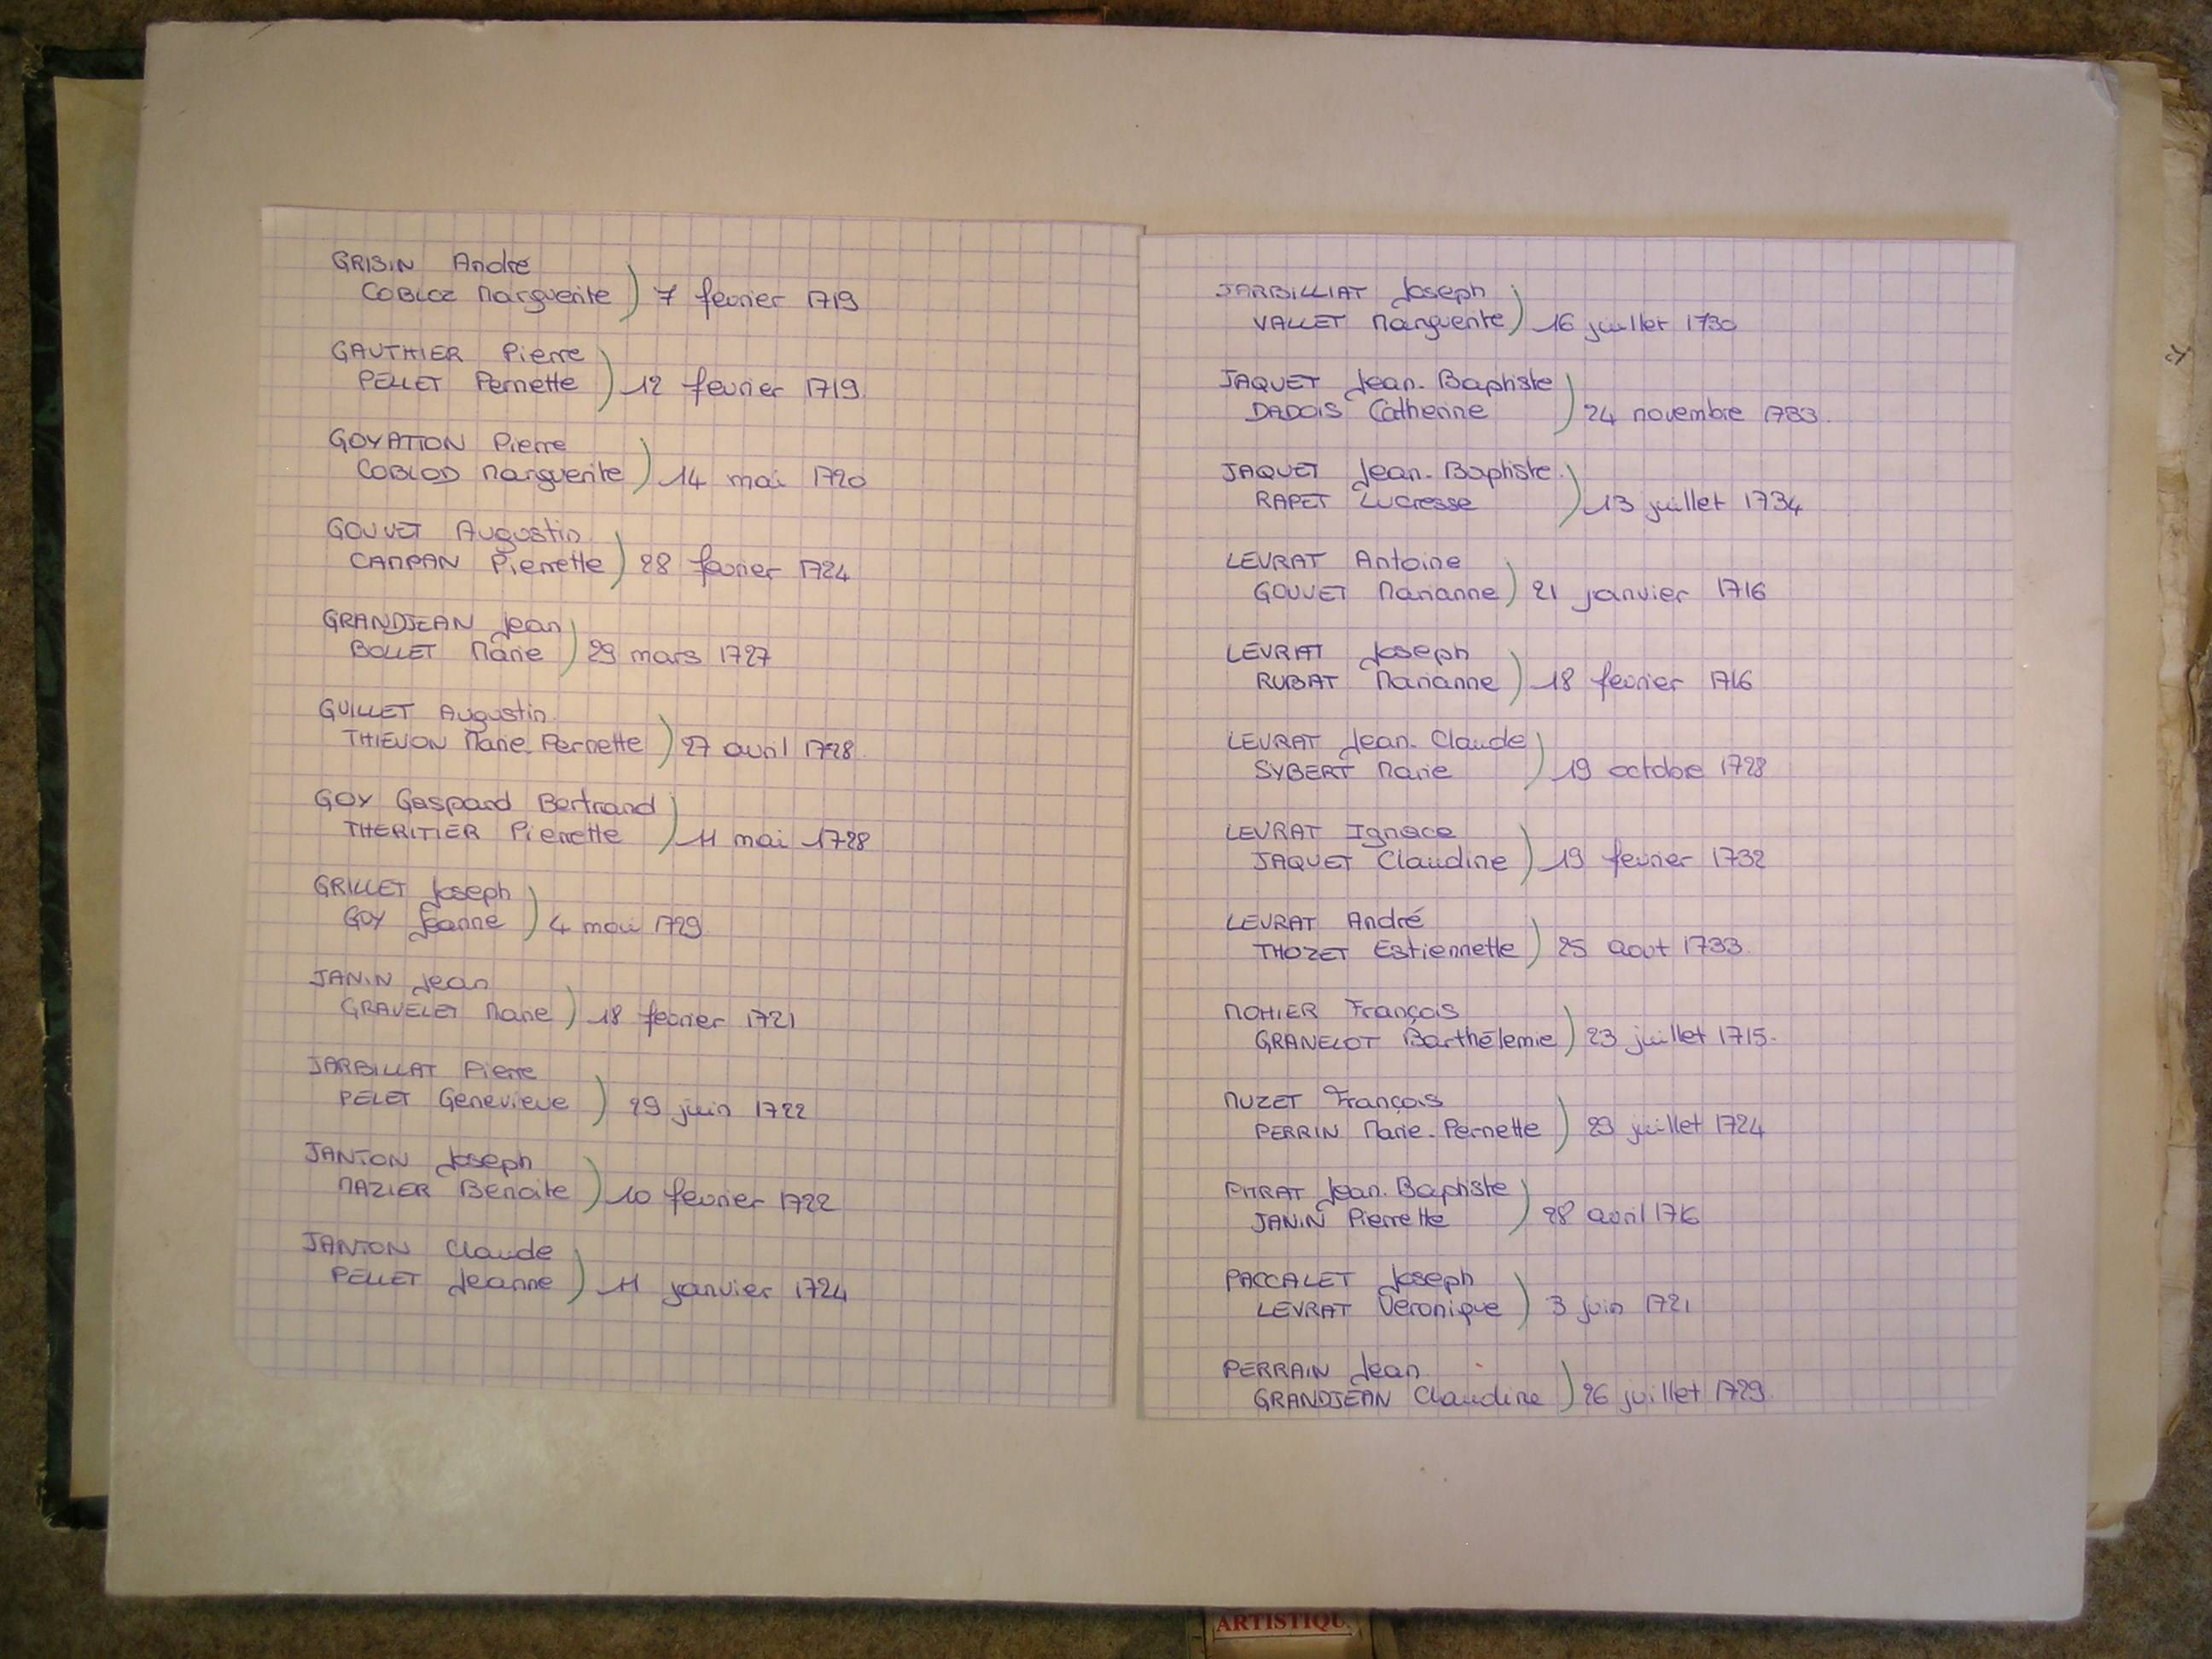 GRISIN André
COBLOZ Marguerite ) 7 fevrier 1719
GAUTHIER Pierre
PELLET Pernette ) 12 fevrier 1719
GOYATION Pierre
COBLOD Marguerite ) 14 mai 1720
GOUVET Augustin
CAMPAN Pierrette ) 28 fevrier 1724
GRANDJEAN Jean
BOLLET Marie ) 29 mars 1727
GUILLET Augustin
THIEVON Marie-Pernette ) 27 avril 1728
GOY Gaspard Bertrand
THERITIER Pierrette ) 11 mai 1728
GRILLET Joseph
GOY Jeanne ) 4 mai 1729
JANIN Jean
GRAVELET Marie ) 18 fevrier 1721
JARBILLAT Pierre
PELET Genevieve ) 29 juin 1722
JANTON Joseph
MAZIER Benoite ) 10 fevrier 1722
JANTON Claude
PELLET Jeanne ) 11 janvier 1724
JARBILLIAT Joseph
VALLET Marguerite ) 16 juillet 1730
JAQUET Jean-Baptiste
DADOIS Catherine ) 24 novembre 1733.
JAQUET Jean-Baptiste
RAPET Lucresse ) 13 juillet 1734
LEVRAT Antoine
GOUVET Marianne ) 21 janvier 1716
LEVRAT Joseph
RUBAT Marianne ) 18 fevrier 1716
LEVRAT Jean-Claude
SYBERT Marie ) 19 octobre 1728
LEVRAT Ignace
JAQUET Claudine ) 19 fevrier 1732
LEVRAT André
THOZET Estiennette ) 25 aout 1733.
MOHIER François
GRANELOT Barthélemie ) 23 juillet 1715.
MUZET François
PERRIN Marie-Pernette ) 29 juillet 1724
PITRAT Jean-Baptiste
JANIN Pierrette ) 28 avril 1716
PACCALET Joseph
LEVRAT Veronique ) 3 juin 1721
PERRAIN Jean
GRANDJEAN Claudine ) 26 juillet 1729.